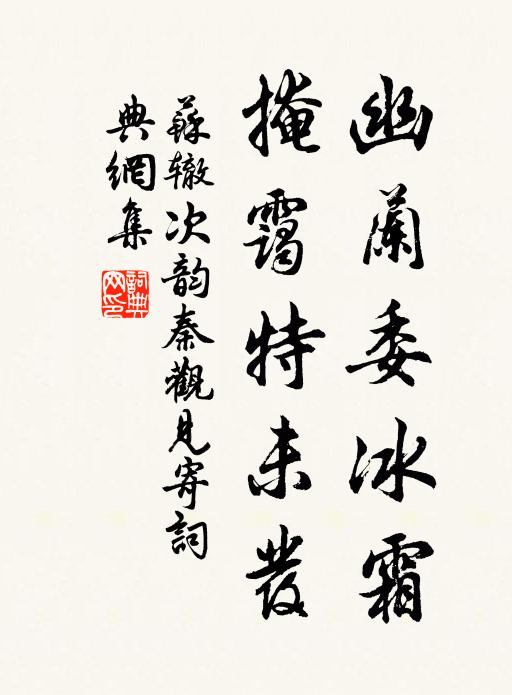 幽蘭委冰霜
掩靄特未發
蘇辙次韵秦觀見寄詞
典網集
詞典網印